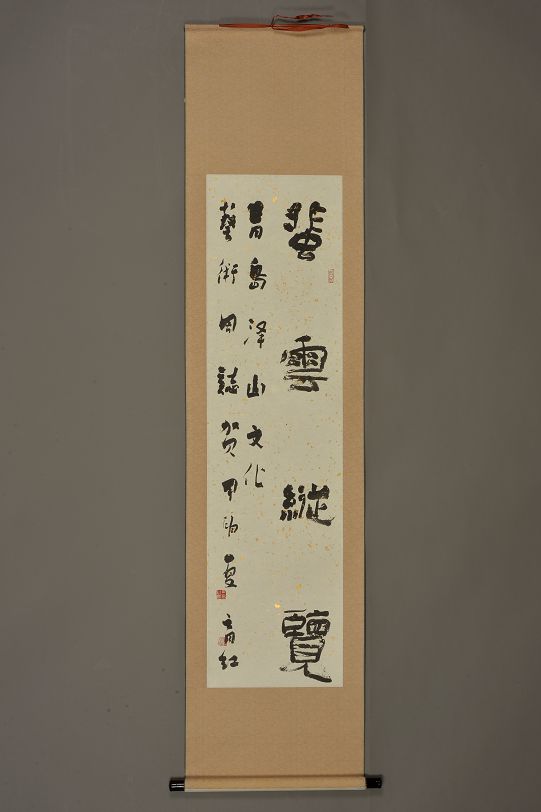 蜚雲縱覽
青島澤山文化
藝術周誌賀甲申夏
紅